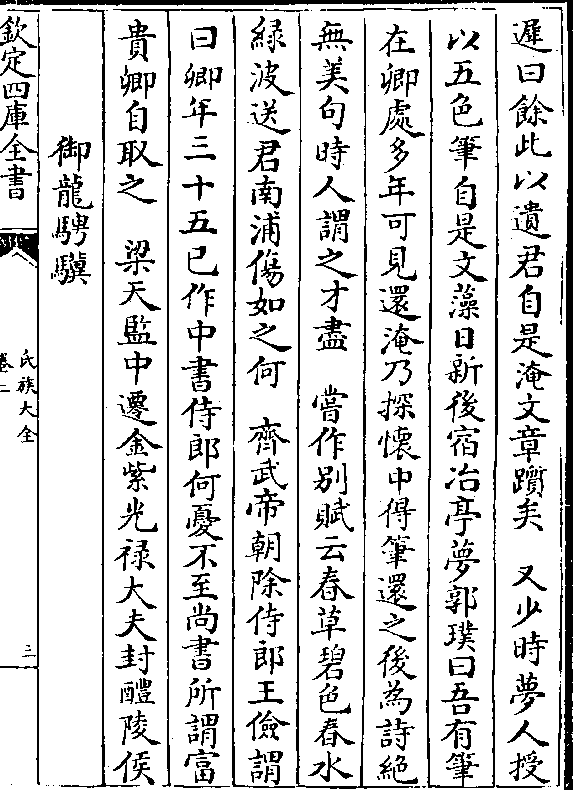 遲曰餘此以遺君自是淹文章躓矣　又少時夢人授
以五色筆自是文藻日新後宿冶亭夢郭璞曰吾有筆
在卿處多年可見還淹乃探懷中得筆還之後為詩絕
無美句時人謂之才盡　嘗作別賦云春草碧色春水
緑波送君南浦傷如之何　齊武帝朝除侍郎王儉謂
曰卿年三十五已作中書侍郎何憂不至尚書所謂富
貴卿自取之　梁天監中遷金紫光禄大夫封醴陵侯
御龍騁驥
欽定四庫全書
氏族大全
卷二
三